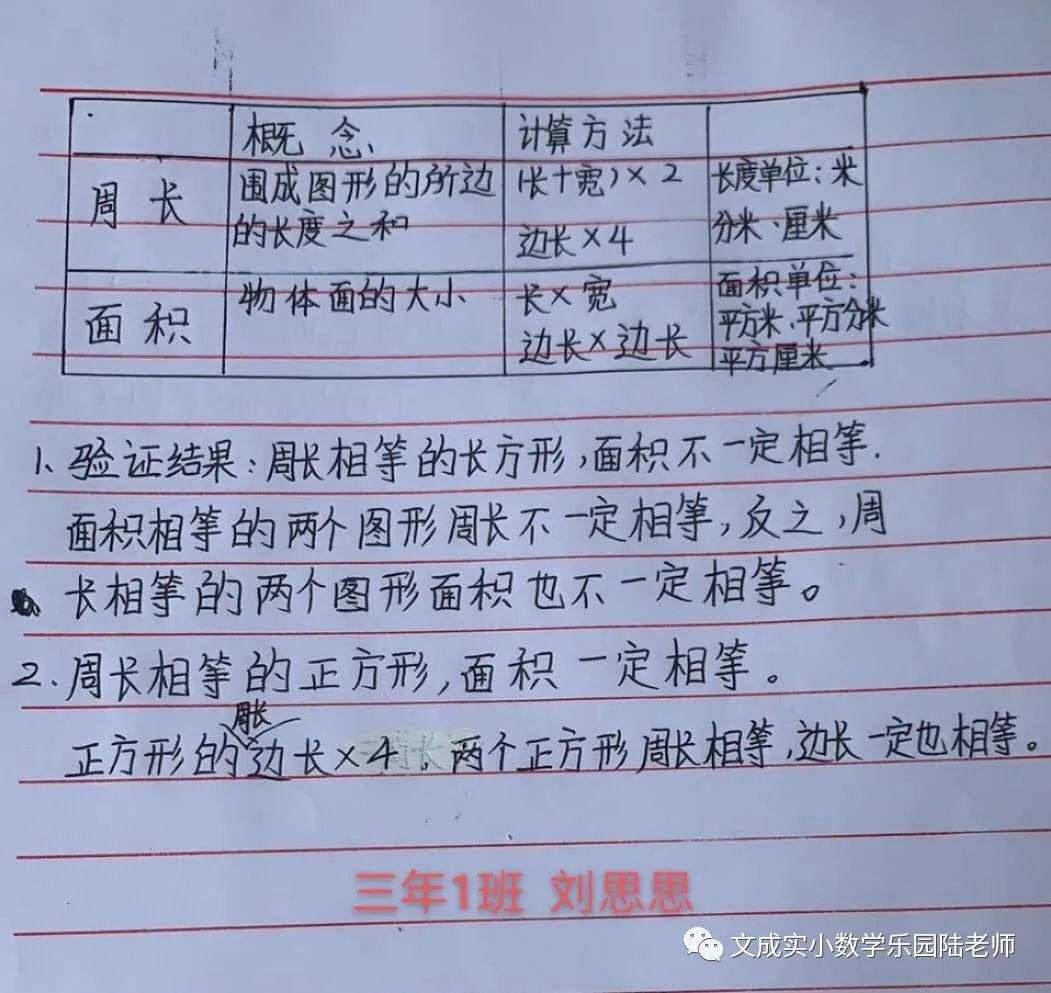 概念 计算方法
周长 围成图形的所边的长度之和 (长+宽)×2 边长×4 长度单位:米分米、厘米
面积 物体面的大小 长×宽 边长×边长 面积单位:平方米、平方分米平方厘米
1、验证结果:周长相等的长方形,面积不一定相等.
面积相等的两个图形周长不一定相等,反之,周
长相等的两个图形面积也不一定相等。
2.周长相等的正方形,面积一定相等。
周长
正方形的边长×4。两个正方形周长相等,边长一定也相等。
三年1班 刘思思
文成实小数学乐园陆老师